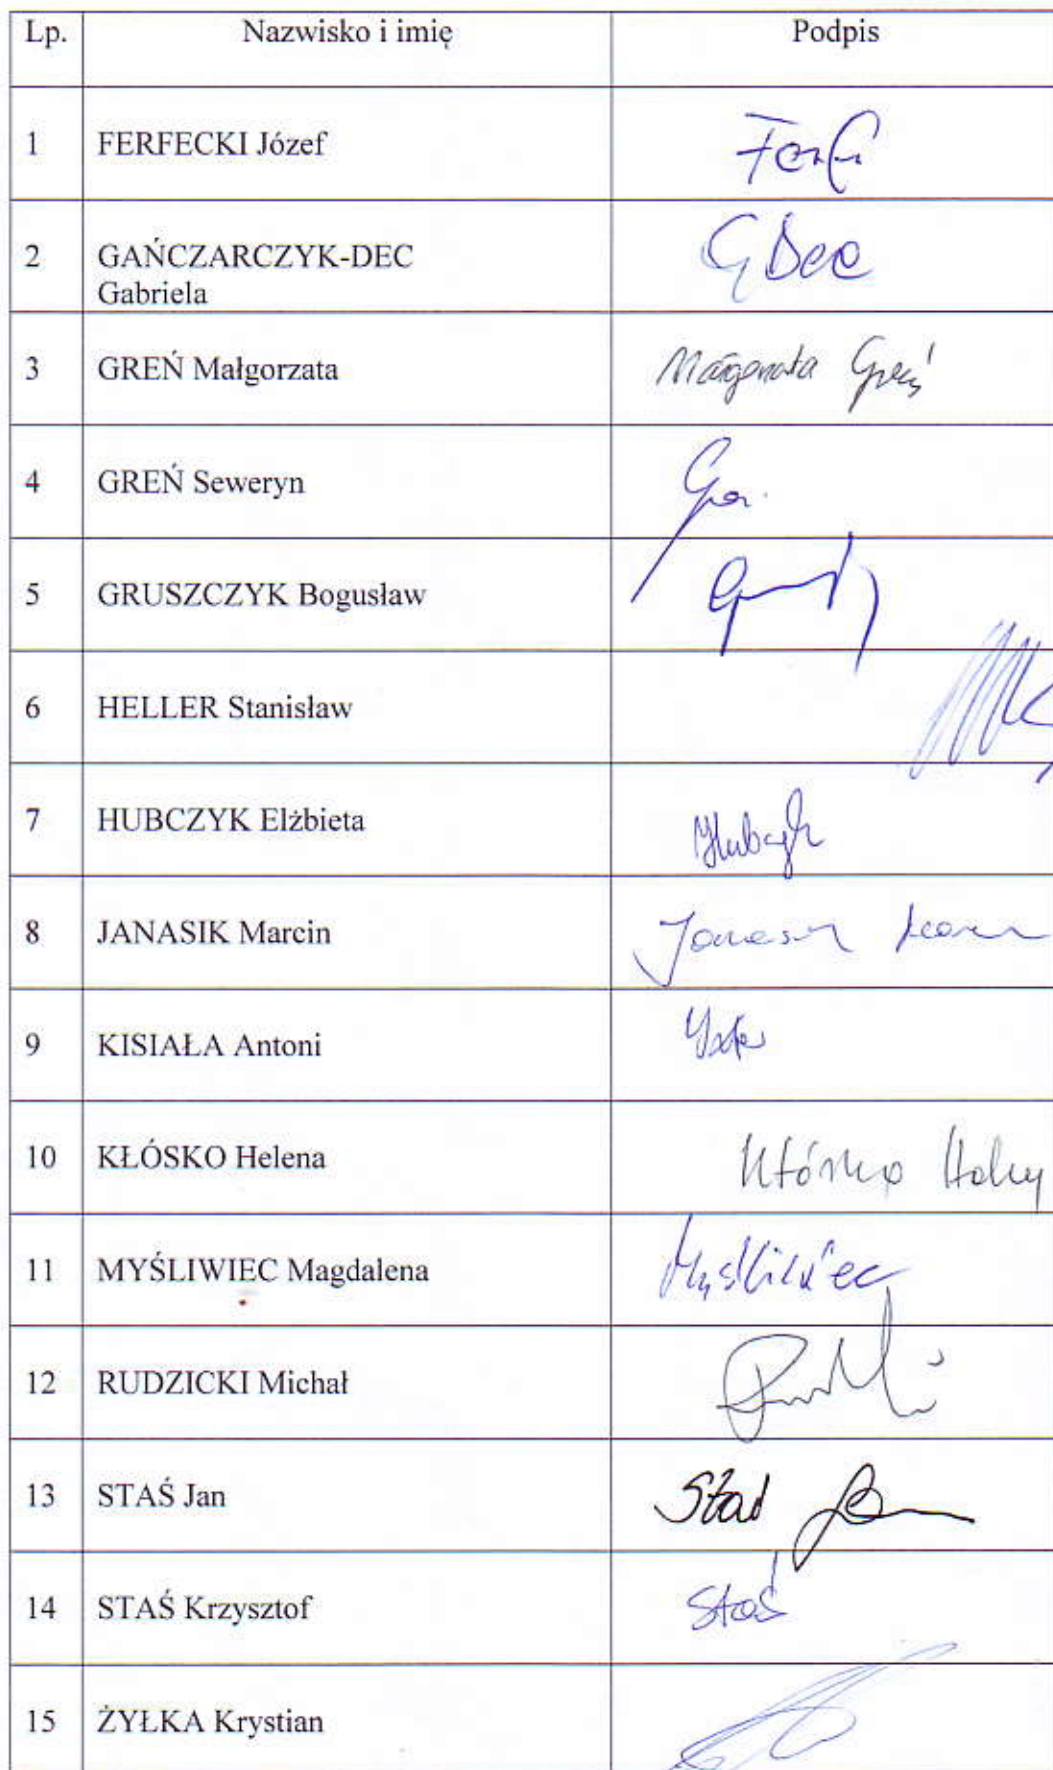 Lp. Nazwisko i imię Podpis
1 FERFECKI Józef
2 GAŃCZARCZYK-DEC G Dec
Gabriela
3 GREŃ Małgorzata Małgorzata Greń
4 GREŃ Seweryn
5 GRUSZCZYK Bogusław
6 HELLER Stanisław
7 HUBCZYK Elżbieta Hubczyk
8 JANASIK Marcin Janasik
9 KISIAŁA Antoni
10 KŁÓSKO Helena Kłósko
11 MYŚLIWIEC Magdalena Myśliwiec
12 RUDZICKI Michał
13 STAŚ Jan Staś Jan
14 STAŚ Krzysztof Staś
15 ŻYŁKA Krystian